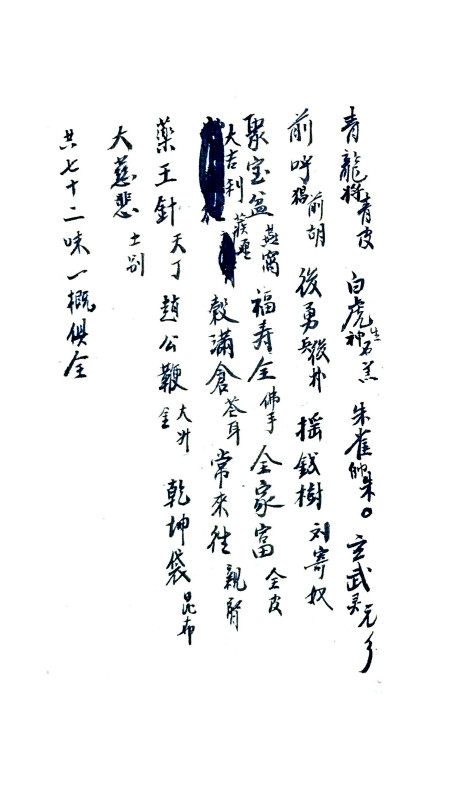 青龍將青皮 白虎神生石羔 朱雀帥朱。 玄武灵元乡
前呼猖前胡 後勇兵後朴 摇錢樹刘寄奴
聚宝盆燕窩 福寿全佛手 全家富全皮
大吉利蒺 穀滿倉苍耳 常來往親
藥王針天丁 趙公鞭大升 乾坤袋昆布
大慈悲土别
共七十二味一概俱全